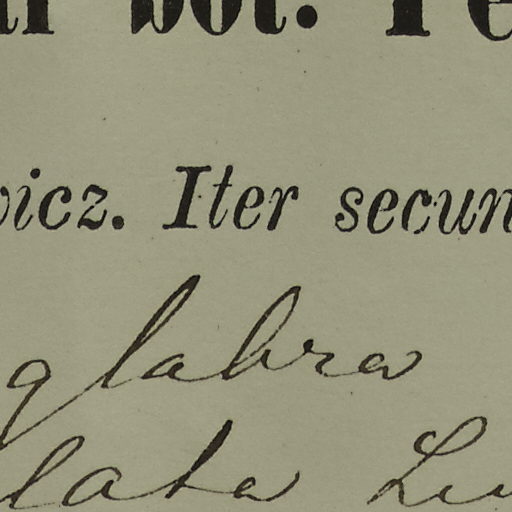 bot.
icz. Iter secun
glabra
lata L